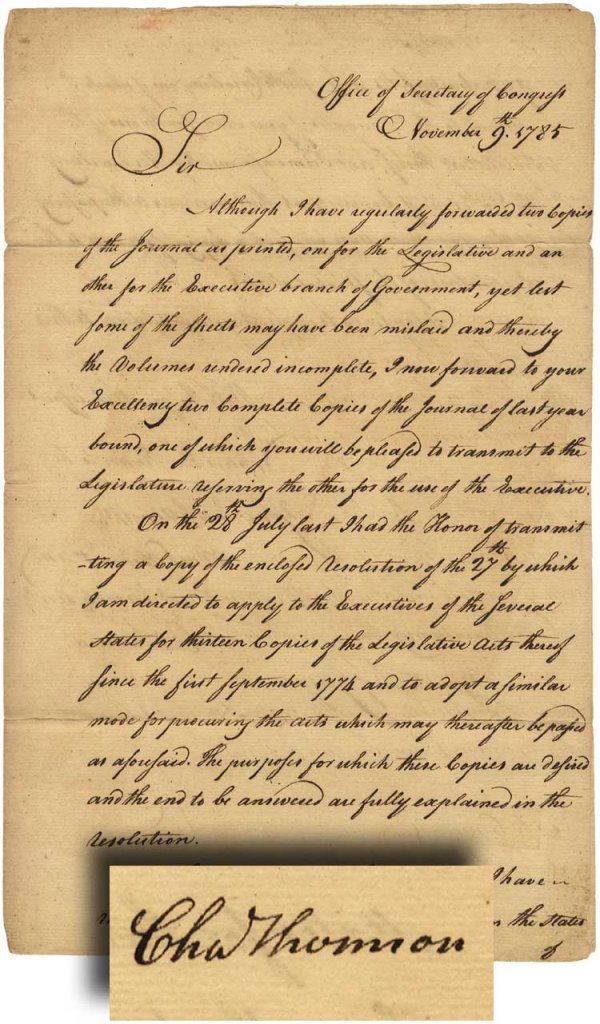 Office of Secretary of Congress
November 9th. 1785
Sir
Although I have regularly forwarded two Copies
of the Journal as printed, one for the Legislative and an
other for the Executive branch of Government, yet lest
some of the sheets may have been mislaid and thereby
the Volumes rendered incomplete, I now forward to your
Excellency two Complete Copies of the Journal of last year
bound, one of which you will be pleased to transmit to the
Legislature reserving the other for the use of the Executive.
On the 28th July last I had the Honor of transmit
-ting a Copy of the enclosed resolution of the 27th by which
I am directed to apply to the Executives of the several
states for thirteen Copies of the Legislative Acts thereof
since the first September 1774 and to adopt a similar
mode for procuring the acts which may thereafter be passed
as aforesaid. The purposes for which these Copies are desired
and the end to be answered are fully explained in the
resolution.
I have
the States
Chas Thomson